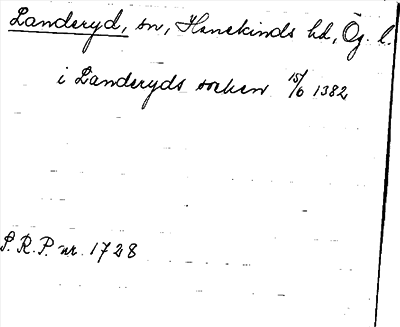 Landeryd, sn, Hanekinds hd, Ög. l.
i Landeryds socken 15/6 1382
S.R.P. nr. 1728